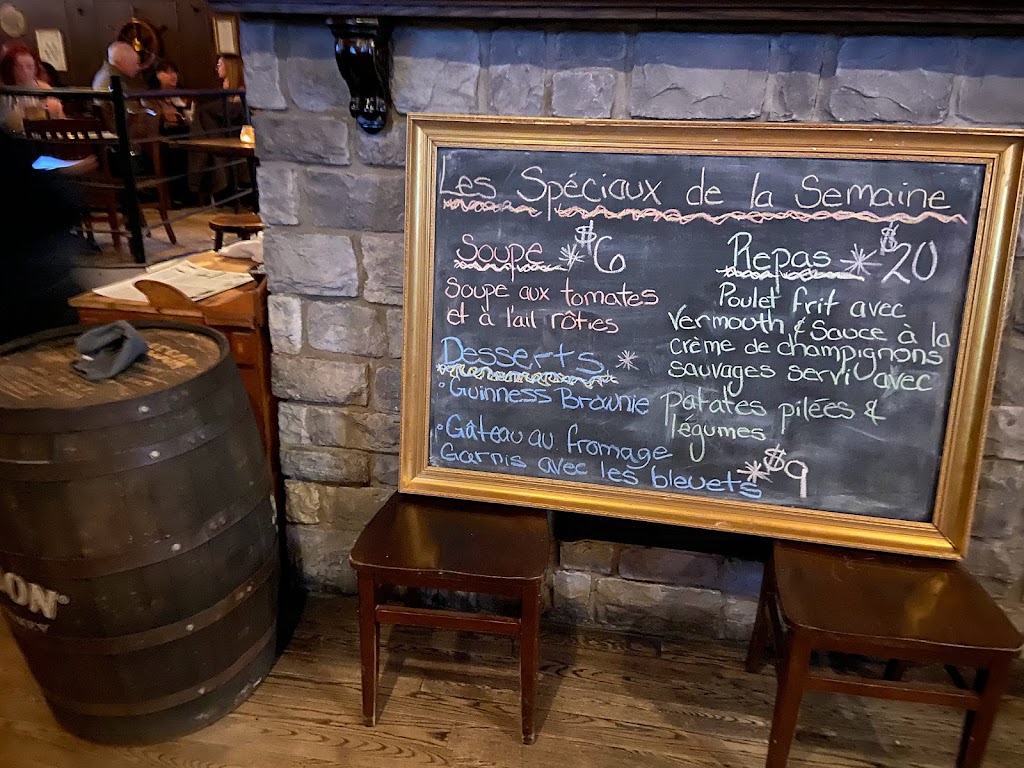 Les Spéciaux de la Semaine
Soupe * $6
Soupe aux tomates
et à l'ail rôties
Desserts *
• Guinness Brownie
• Gâteau au fromage
Garnis avec les bleuets * $9
Repas * $20
Poulet frit avec
Vermouth & Sauce à la
crème de champignons
sauvages servi avec
patates pilées &
légumes
ON®